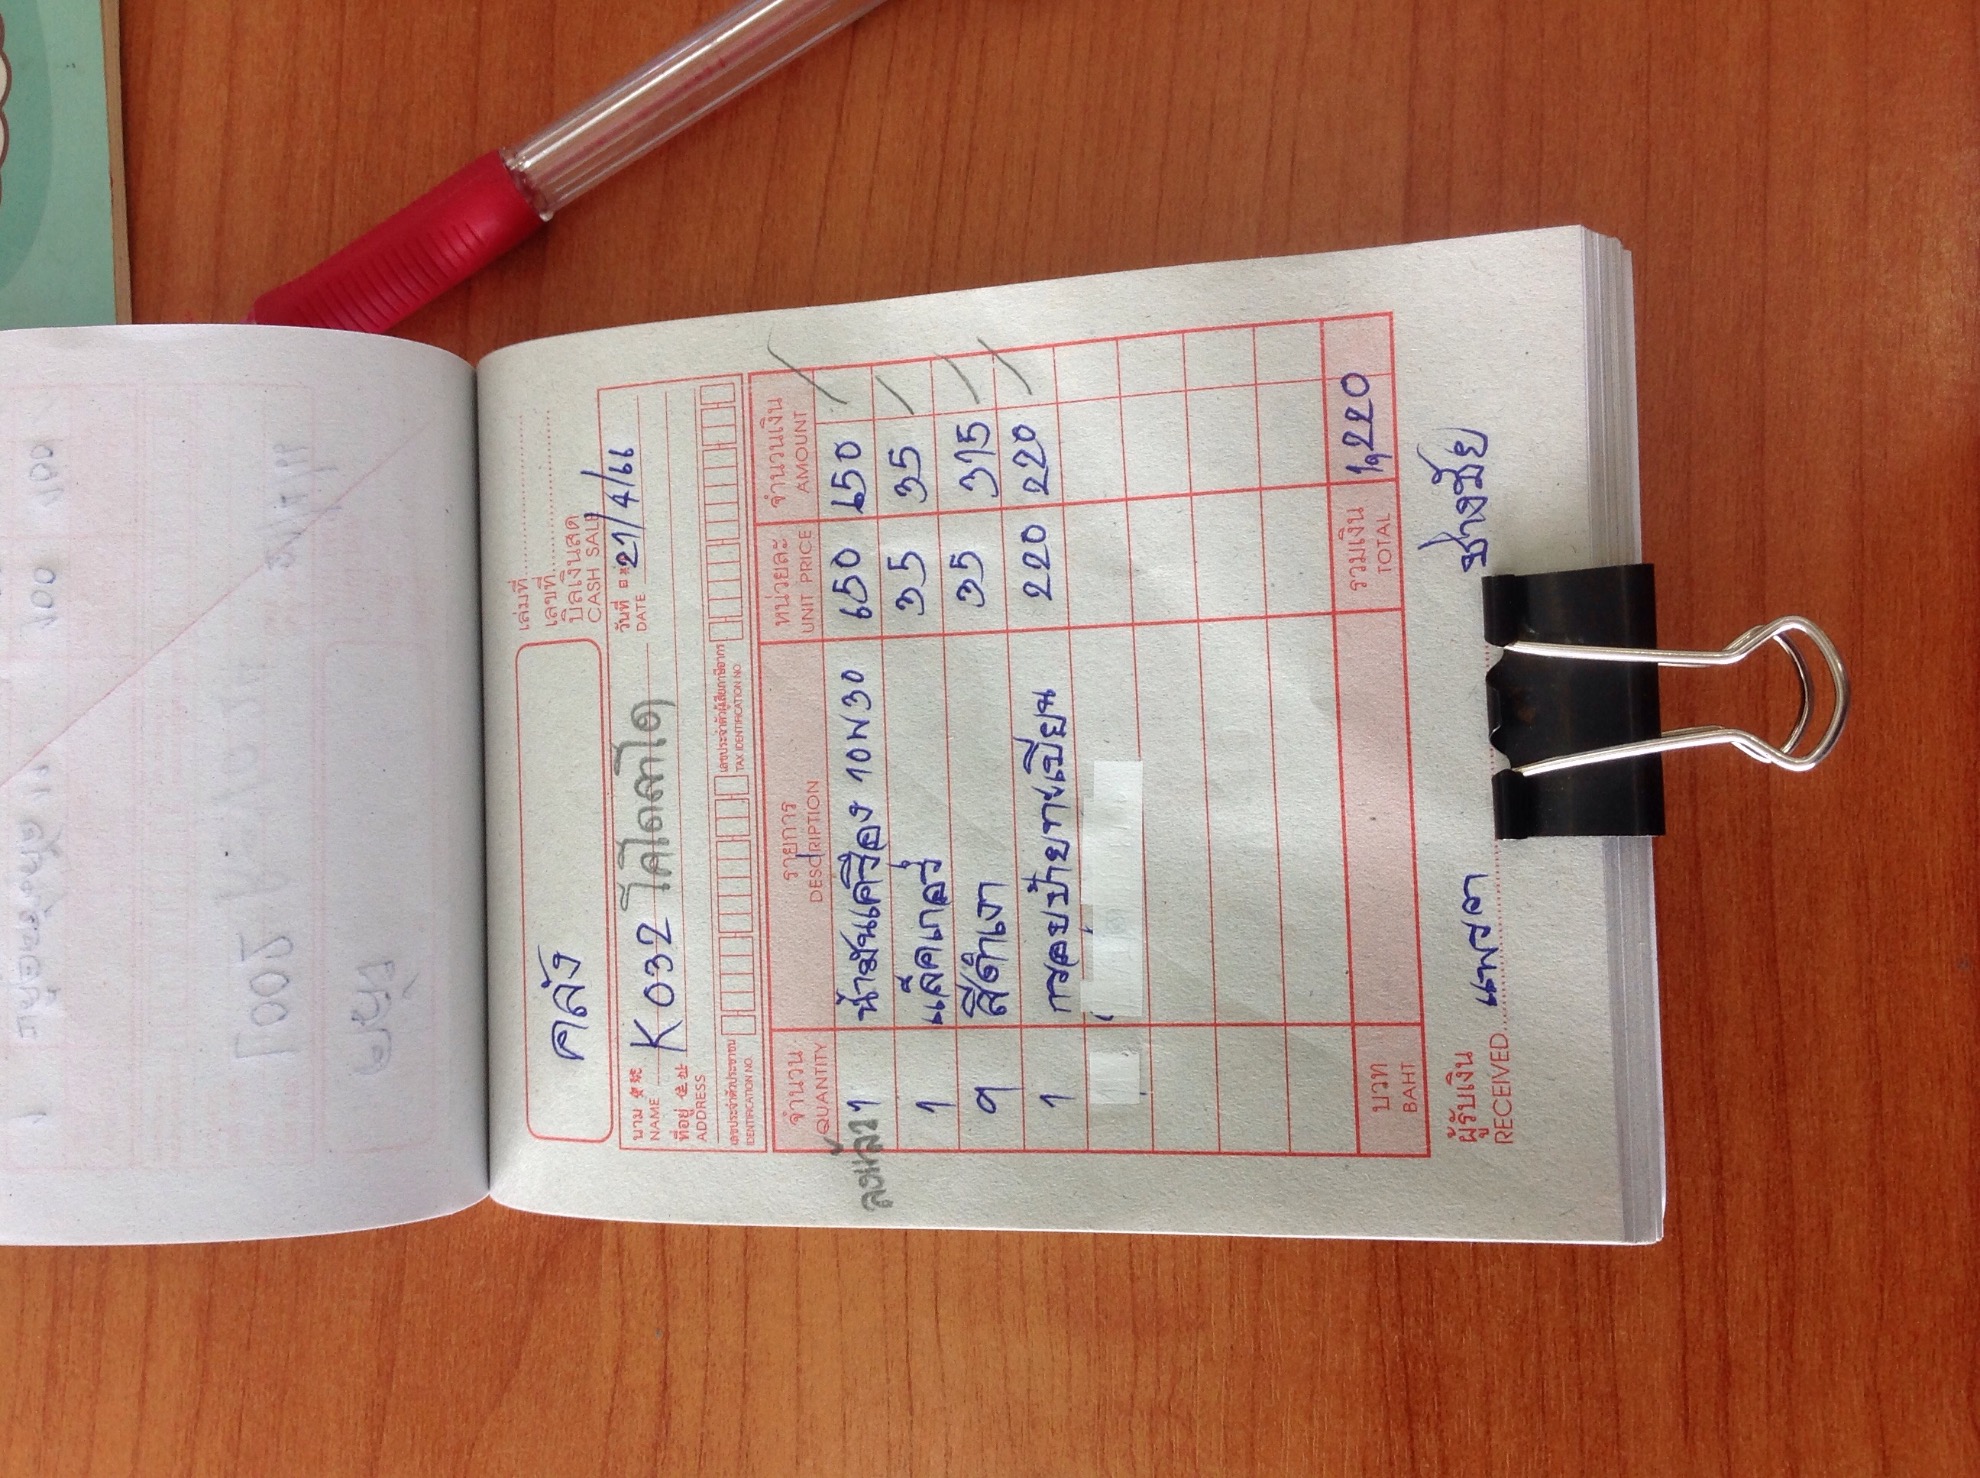 เล่มที่
เลขที่
บิลเงินสด
CASH SALE
คลัง
นาม NAME K032 โคโลลาโด วันที่ DATE 21/4/66
ที่อยู่ 住址
ADDRESS
เลขประจำตัวประชาชน เลขประจำตัวผู้เสียภาษีอากร
IDENTIFICATION NO. TAX IDENTIFICATION NO.
จำนวน รายการ หน่วยละ จำนวนเงิน
QUANTITY DESCRIPTION UNIT PRICE AMOUNT
ลงแล้ว 1 น้ำมันเครื่อง 10W30 650 650
1 แล็คเกอร์ 35 35
9 สีดำเงา 35 315
1 กรอบป้ายทะเบียน 220 220
บาท รวมเงิน 1,220
BAHT TOTAL
ผู้รับเงิน
RECEIVED แพรวา ช่างชัย